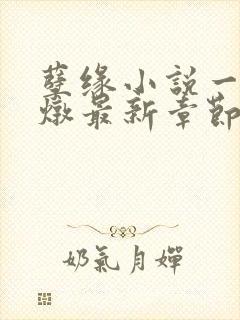 孽缘小說一
燉最新章節
奶氣月嬋